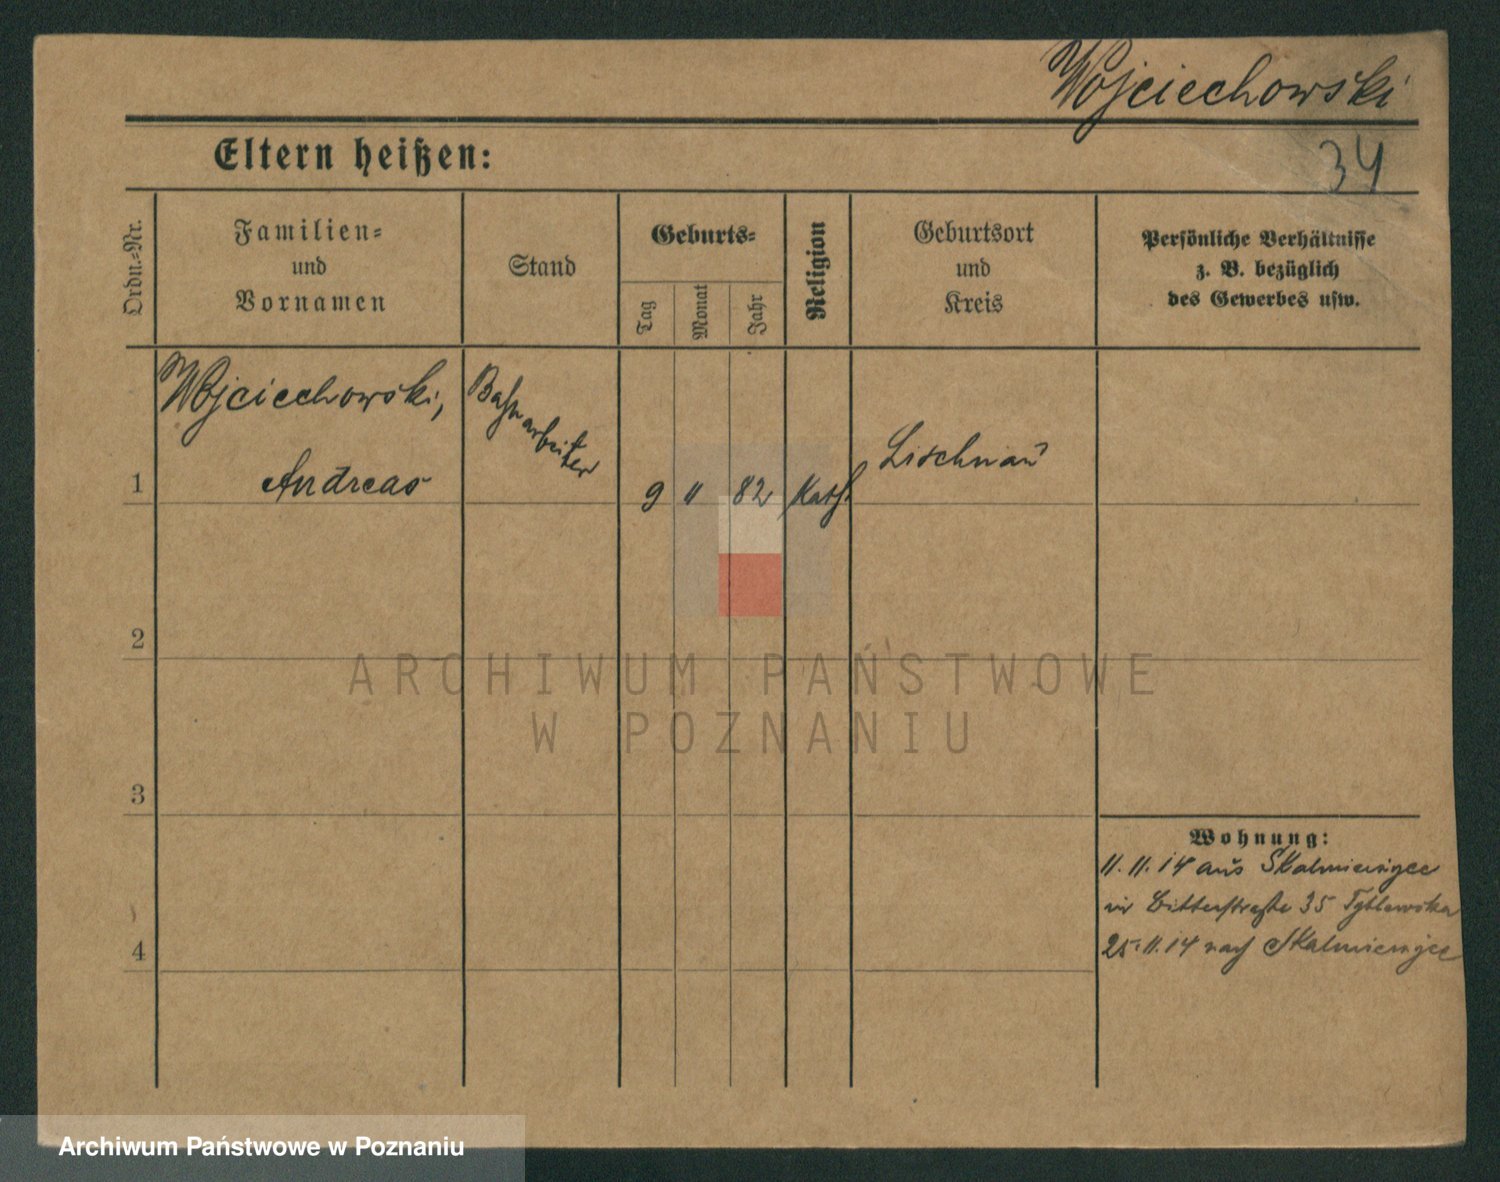 Wojciechowski
34
Eltern heißen:
Ordn.-Nr.
Familien-
und
Vornamen
Stand
Geburts-
Tag
Monat
Jahr
Religion
Geburtsort
und
Kreis
Persönliche Verhältnisse
z. B. bezüglich
des Gewerbes usw.
Wojciechowski,
Andreas
Bahnarbeiter
1
9 11 82 Kath.
Lischnau
2
ARCHIWUM PAŃSTWOWE
W POZNANIU
3
Wohnung:
11.11.14 aus Skalmierzyce
35
4
25.11.14 nach Skalmierzyce
Archiwum Państwowe w Poznaniu